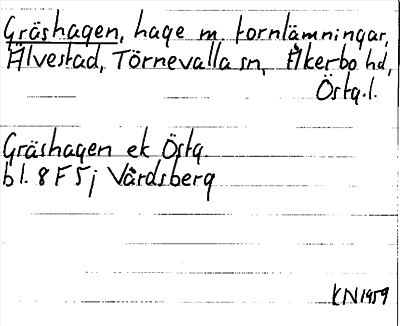 Gräshagen, hage m. fornlämningar,
Älvestad, Törnevalla sn, Åkerbo hd,
Östg.l.
Gräshagen ek Östg.
bl. 8F5j Vårdsberg
KN 1959